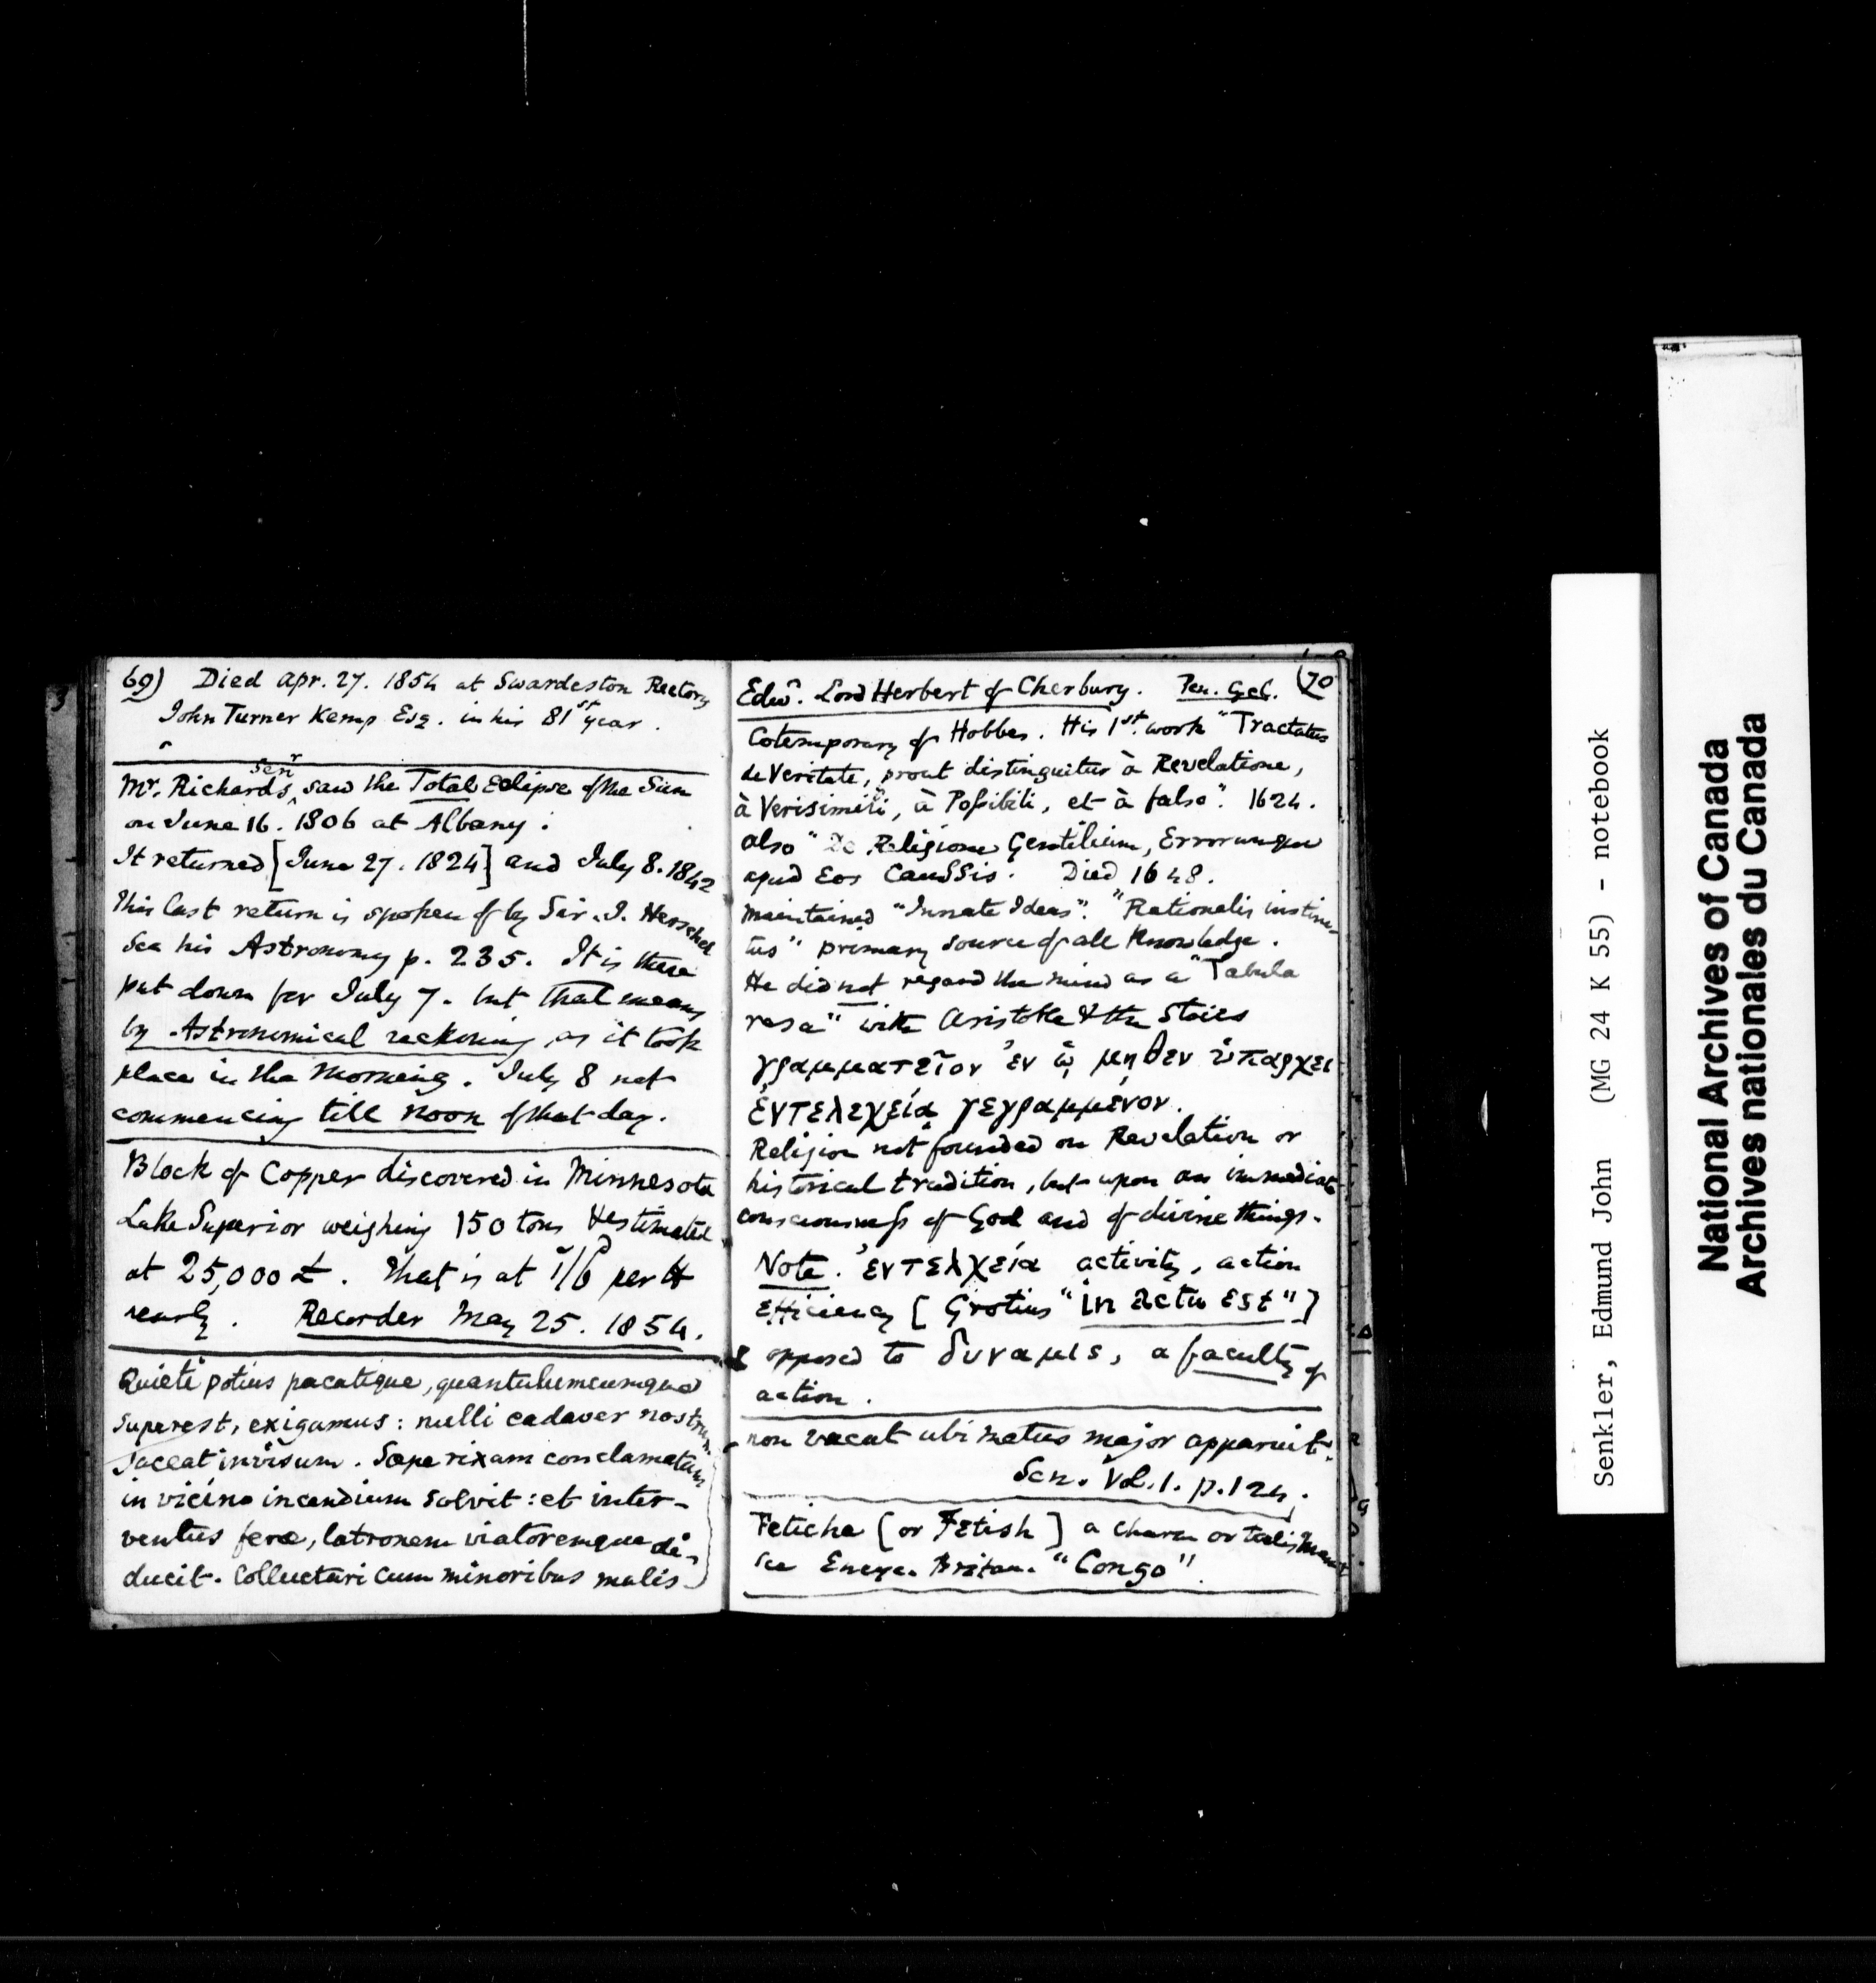 69) Died Apr. 27. 1854 at Swardeston Rectory
John Turner Kemp Esq. in his 81st year.
Mr. Richards Senr saw the Total Eclipse of the Sun
on June 16. 1806 at Albany.
It returned [June 27. 1824] and July 8. 1842
This last return is spoken of by Sir. J. Herschel
See his Astronomy p. 235. It is there
put down for July 7. but that means
by Astronomical reckoning, as it took
place in the Morning. July 8 not
commencing till noon of that day.
Block of Copper discovered in Minnesota
Lake Superior weighing 150 tons & estimated
at 25,000 £. That is at 1/6 per ℔
nearly. Recorder May 25. 1854.
Quieti potius pacatique, quantulumcumque
superest, exigamus: nulli cadaver nostrum
jaceat invisum. Sæpe rixam conclamatum
in vicino incendium solvit: et inter-
ventus feræ, latronem viatoremque di-
ducit. Colluctari cum minoribus malis
70
Edwd. Lord Herbert of Cherbury. Pen. Cyc.
Cotemporary of Hobbes. His 1st. work "Tractatus
de Veritate, prout distinguitur à Revelatione,
à Verisimili, à Possibili, et à falso". 1624.
also "De Religione Gentilium, Errorumque
apud Eos Caussis. Died 1648.
Maintained "Innate Ideas". "Rationalis instinc-
tus" primary source of all Knowledge.
He did not regard the mind as a "Tabula
rasa" with Aristotle & the Stoics
γραμματεῖον ἐν ᾧ μηθεν ὑπαρχει
ἐντελεχείᾳ γεγραμμένον.
Religion not founded on Revelation or
historical tradition, but upon an immediate
consciousness of God and of divine things.
Note. ἐντελχεία activity, action
Efficiency [Grotius "in actu est"]
& opposed to δυναμις, a faculty of
action.
non vacat ubi metus major apparuit.
Sen. Vol. 1. p. 124.
Fetiche [or Fetish] a charm or talisman
See Encyc. Britan. "Congo".
Senkler, Edmund John (MG 24 K 55) - notebook
National Archives of Canada
Archives nationales du Canada